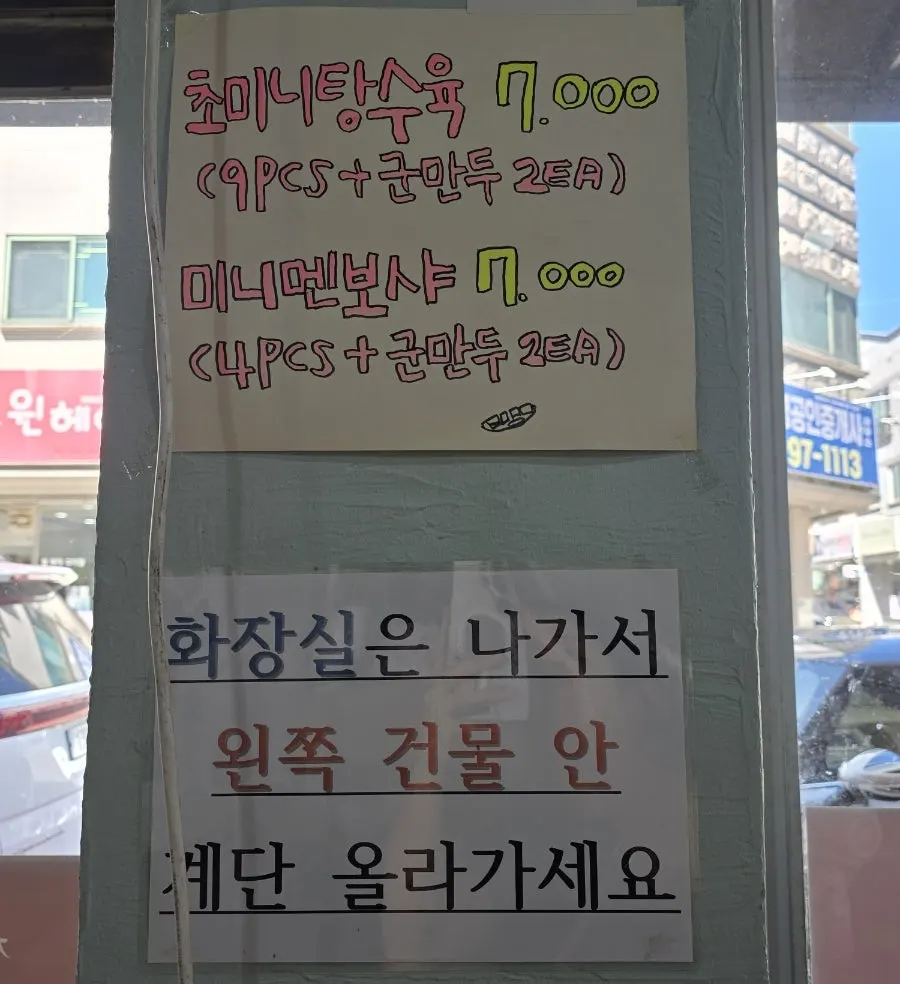 초미니탕수육 7.000
(9PCS + 군만두 2EA)
미니멘보샤 7.000
(4PCS + 군만두 2EA)
화장실은 나가서
왼쪽 건물 안
계단 올라가세요
원헤
공인중개사
97-1113